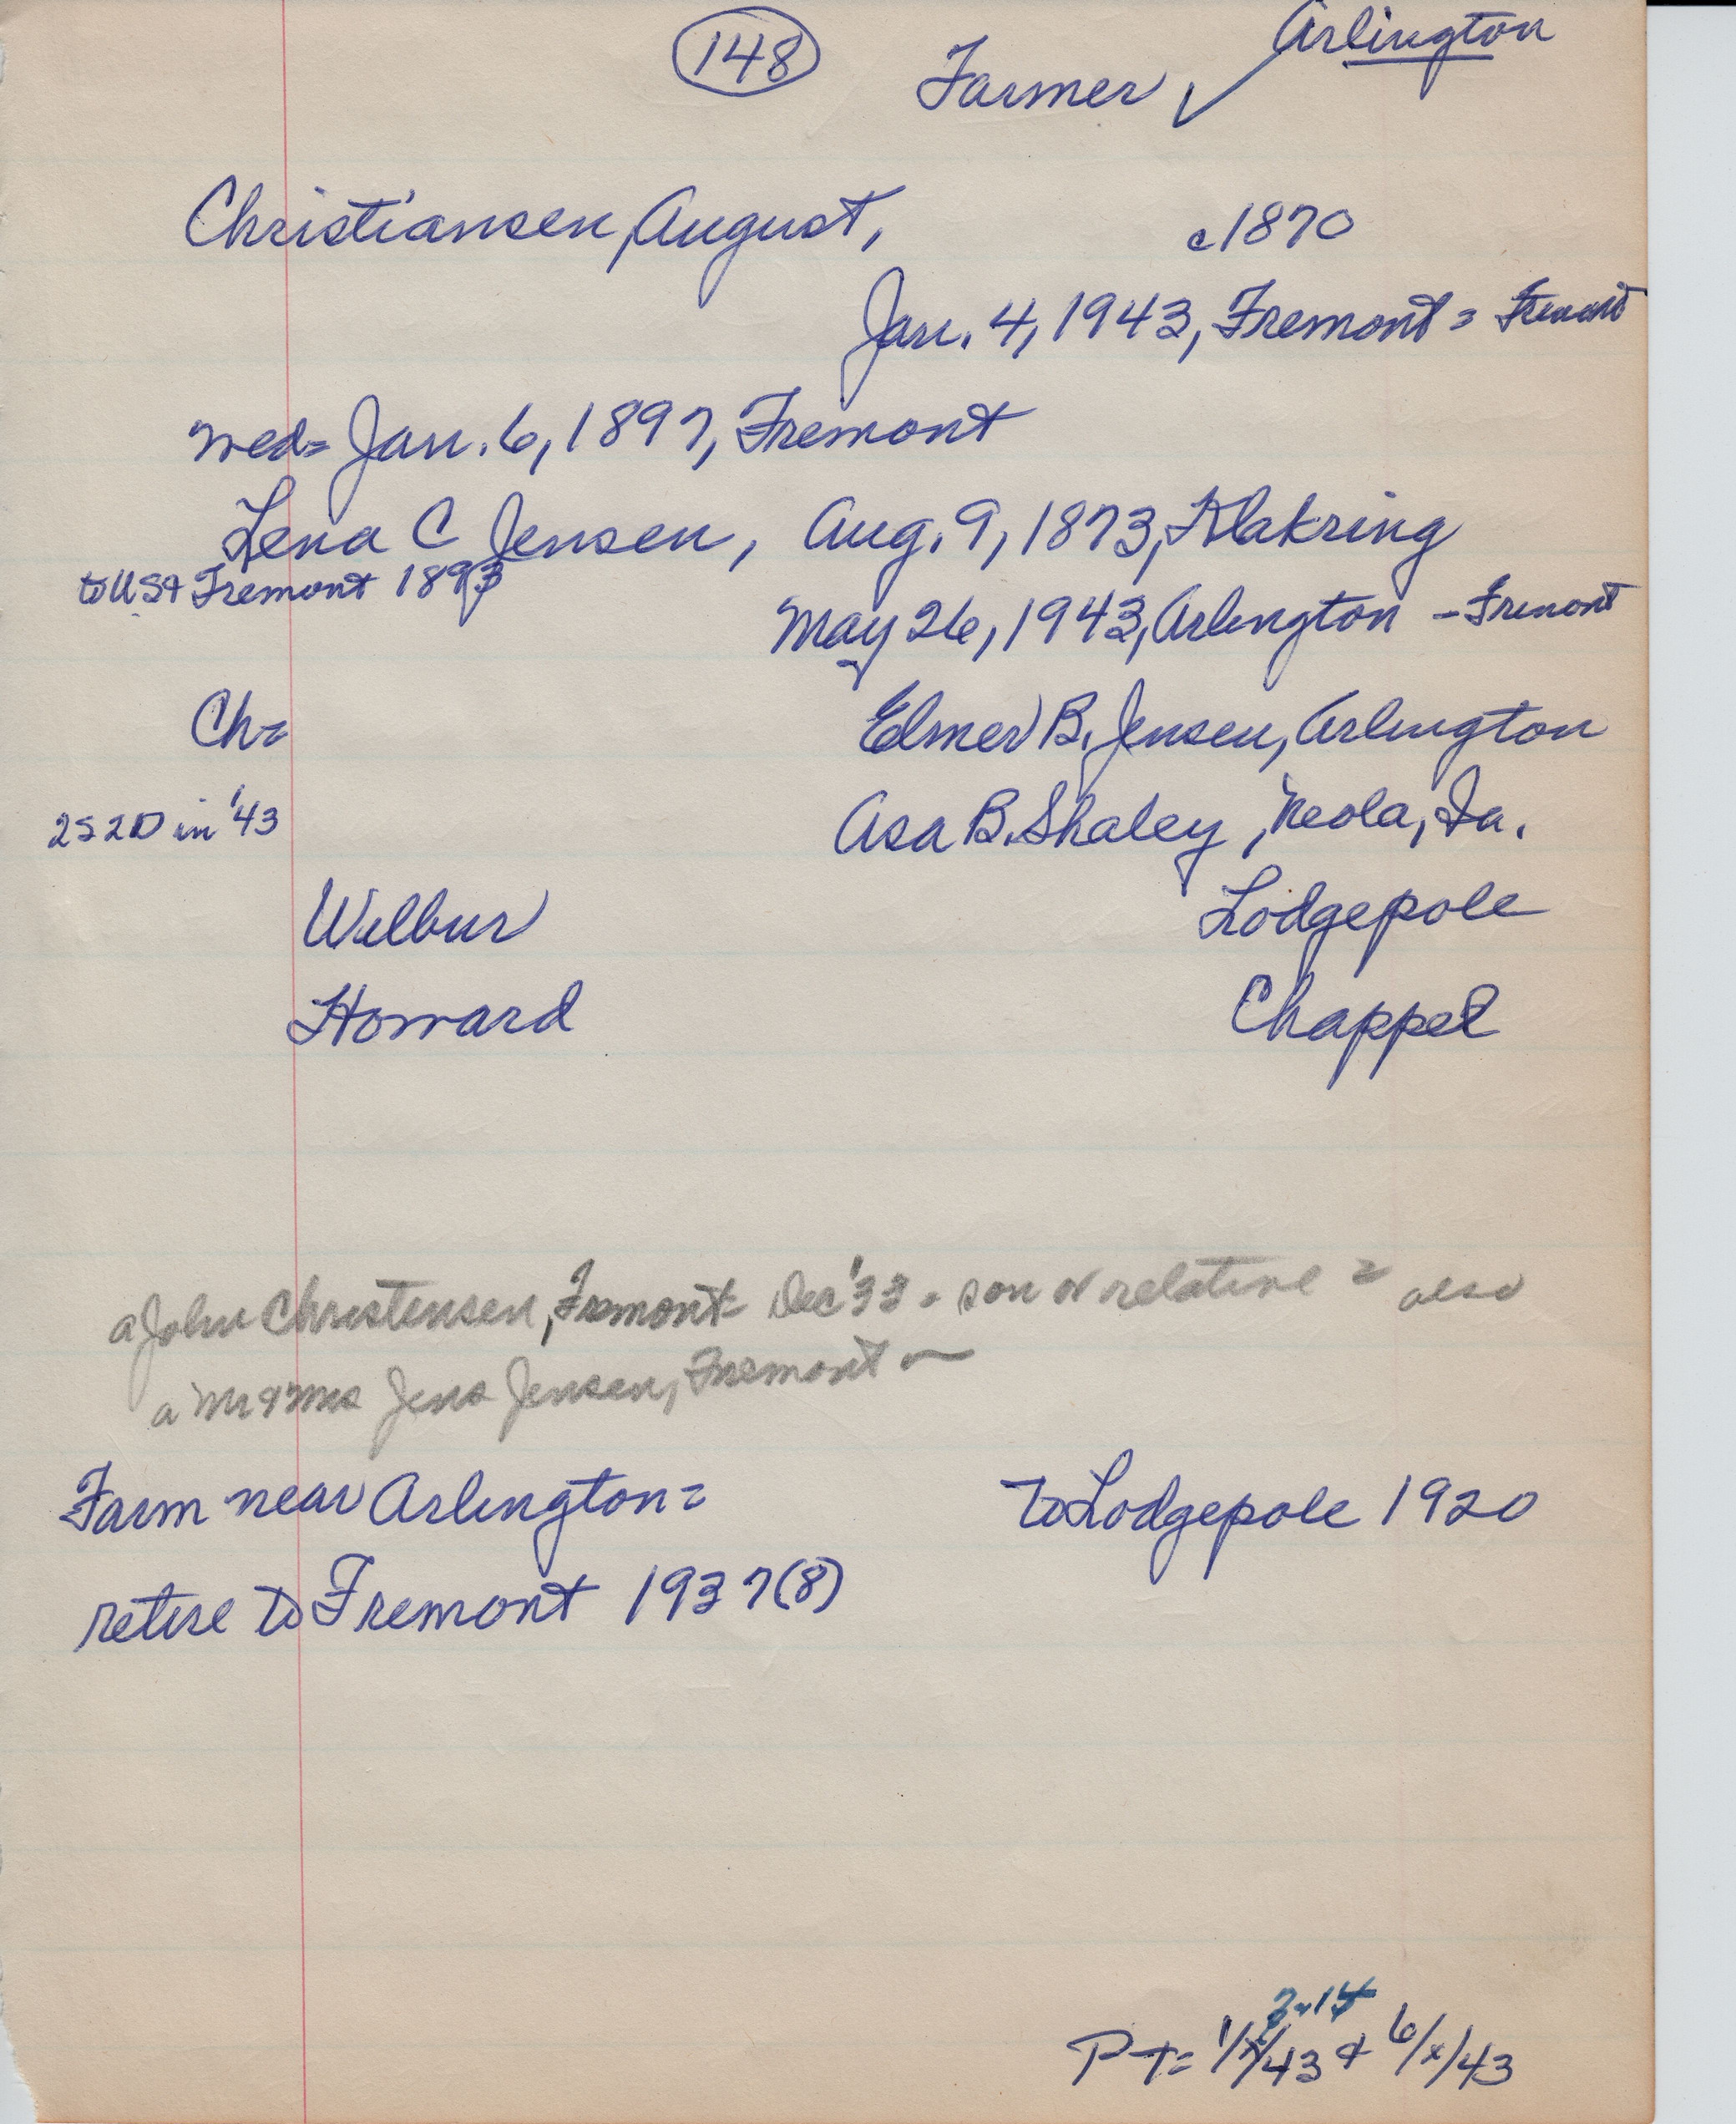 148
Arlington
Farmer ✓
Christiansen, August, c1870
Jan. 4, 1943, Fremont = Fremont
wed= Jan. 6, 1897, Fremont
Lena C Jensen, Aug. 9, 1873, Klakring
to US & Fremont 1893
May 26, 1943, Arlington - Fremont
Ch= Elmer B. Jensen, Arlington
2S 2D in '43 Asa B. Shaley, Neola, Ia.
Wilbur Lodgepole
Howard Chappel
a John Christensen, Fremont= Dec '33 = son or relative = also
a Mr & Mrs Jens Jensen, Fremont —
Farm near Arlington= to Lodgepole 1920
retire to Fremont 1937(8)
PT= 1/x/43 & 6/x/43